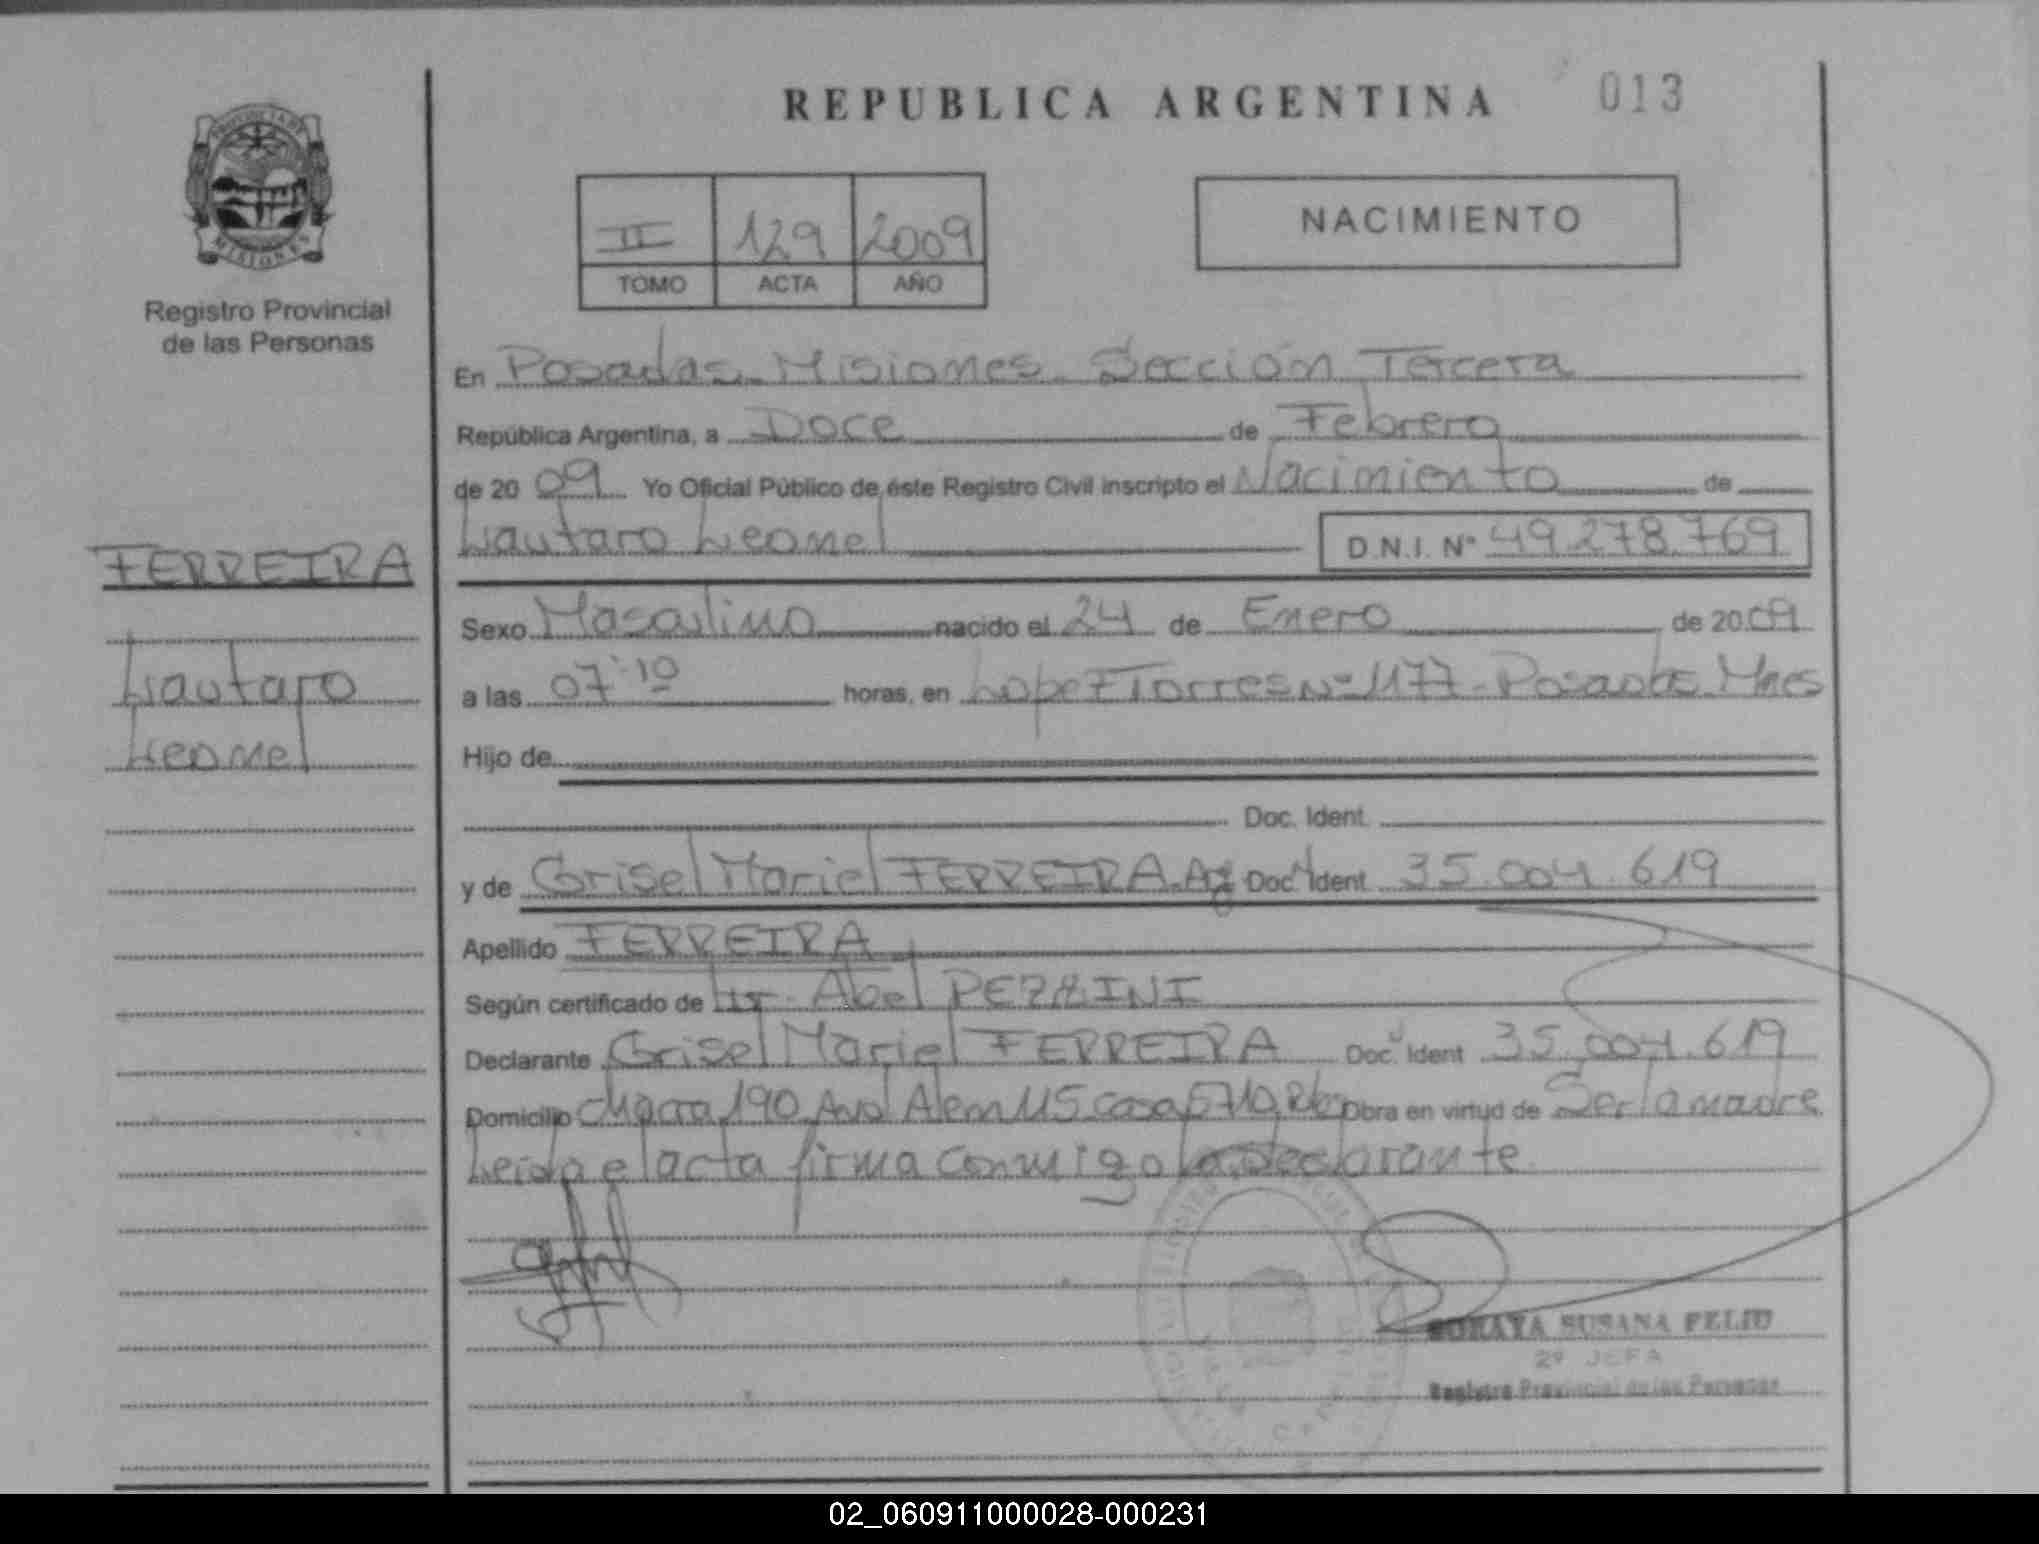 REPUBLICA ARGENTINA
013
PROVINCIA DE
MISIONES
Registro Provincial
de las Personas
II 129 2009
TOMO ACTA AÑO
NACIMIENTO
En Posadas Misiones Sección Tercera
República Argentina, a Doce de Febrero
de 20 09 Yo Oficial Público de éste Registro Civil inscripto el Nacimiento de
Lautaro Leonel D.N.I. Nº 49.278.769
FERREIRA
Lautaro
Leonel
Sexo Masculino nacido el 24 de Enero de 20 09
a las 07:10 horas, en Lopez Torres Nº 1177 - Posadas Mnes
Hijo de
Doc. Ident.
y de Grisel Mariel FERREIRA. Doc. Ident. 35.004.619
Apellido FERREIRA
Según certificado de Abel
Declarante Grisel Mariel FERREIRA Doc. Ident 35.004.619
Domicilio Chacra 190 Avd Alem 115 casa 5710 Obra en virtud de Ser la madre
Leida el acta firma conmigo la Declarante
SORAYA SUSANA FELIU
2º JEFA
Registro Provincial de las Personas
02_060911000028-000231